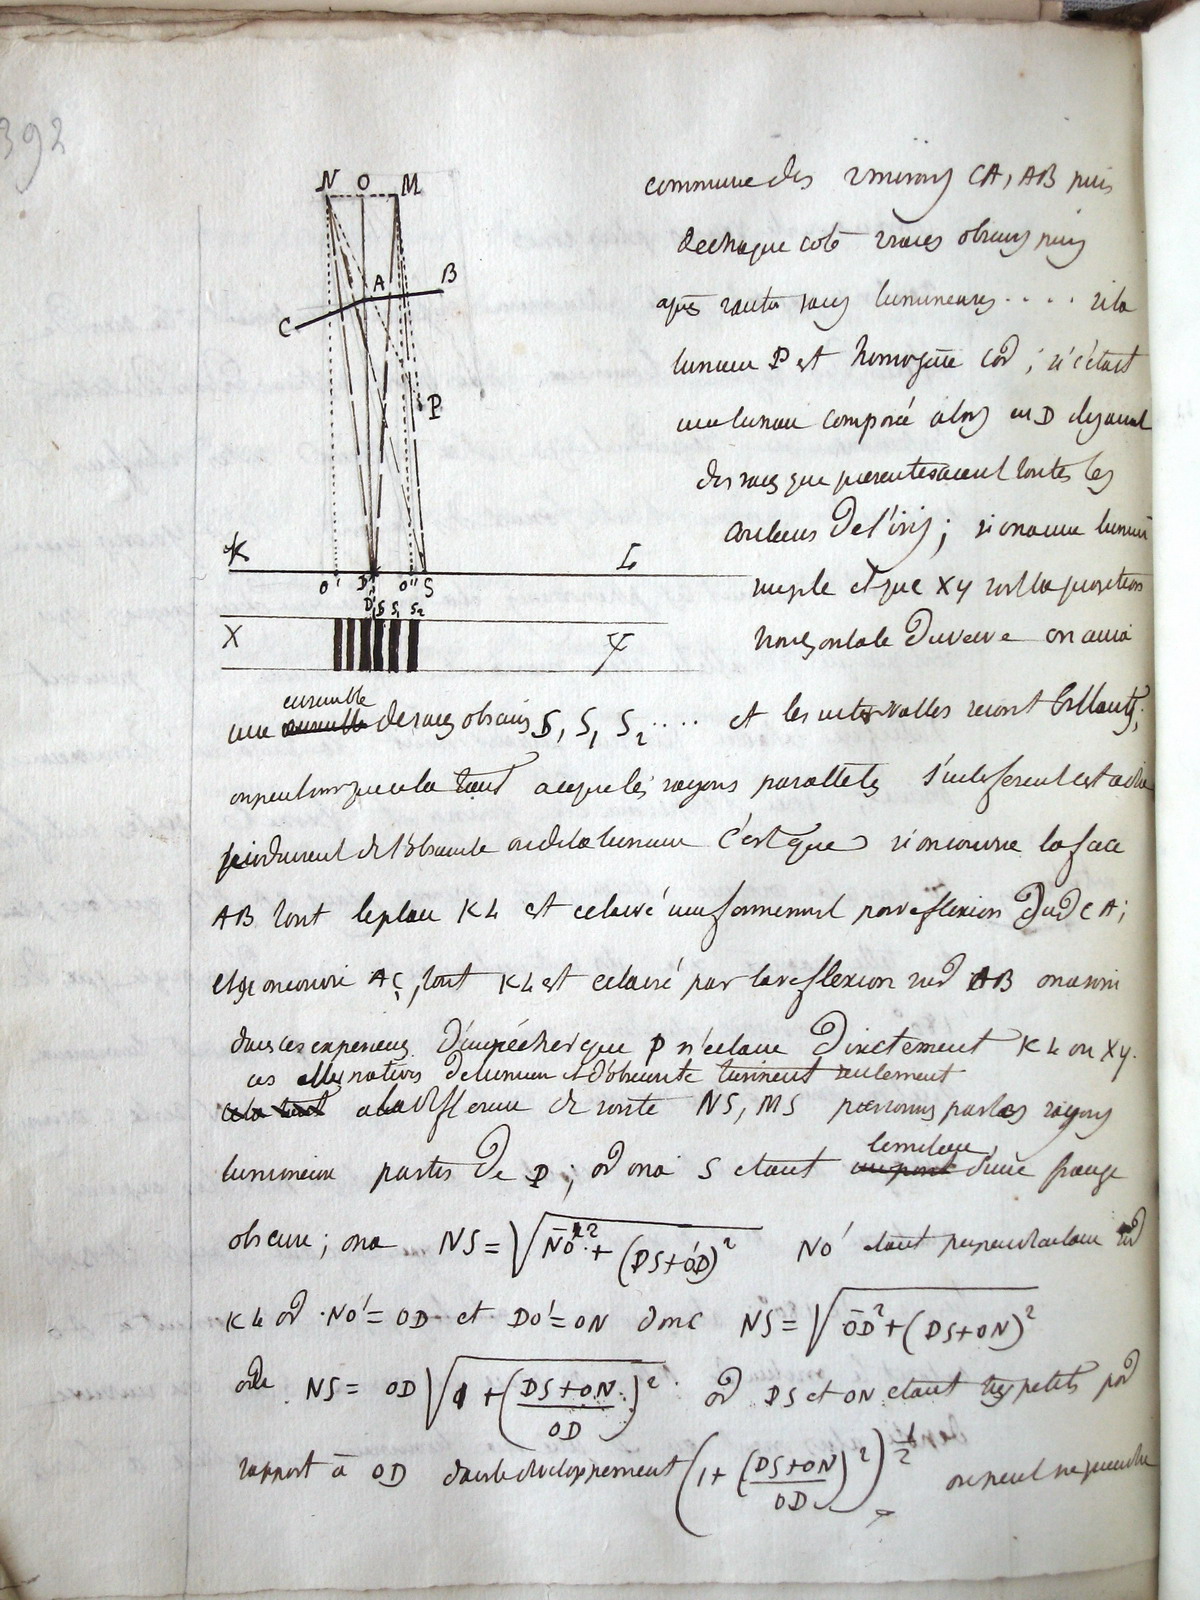 392
N O M
A B
C
P
K L
O' D O'' S
D' S S₁ S₂
X Y
commune des 2 miroirs CA, AB puis
de chaque coté raies obscures puis
après raies lumineuses .... si la
lumière P est homogène ; si c'était
une lumière composée alors en D
des raies que presenteraient toutes les
couleurs de l'iris ; si on a une lumière
simple et que XY soit la projection
horizontale on aura
une ensemble de raies obscures S, S₁ S₂ .... et les intervalles seront brillants ;
on peut voir que cela tient a ce que les rayons parallels s'interferent c'est a dire
produisent de l'obscurité ou de la lumière c'est que si on couvre la face
AB tout le plan KL est eclairé uniformement par reflexion sur CA ;
et si on couvre AC, tout KL est eclairé par la reflexion sur AB on a soin
dans ces experiences d'empécher que P n'eclaire directement KL ou XY.
ces alternatives de lumière et d'obscurité tiennent seulement
cela tient a la difference de route NS, MS parcourus par les rayons
lumineux partis de P ; or on a S etant un point le milieu d'une frange
obscure ; on a NS = √(NO'² + (DS+O'D)²) NO' etant perpendiculaire sur
KL or NO' = OD et DO' = ON donc NS = √(OD² + (DS+ON)²)
ou NS = OD √(1 + ((DS+ON)/OD)²) or DS et ON etant très petits par
rapport à OD dans le developpement (1 + ((DS+ON)/OD)²)^½ on peut ne prendre